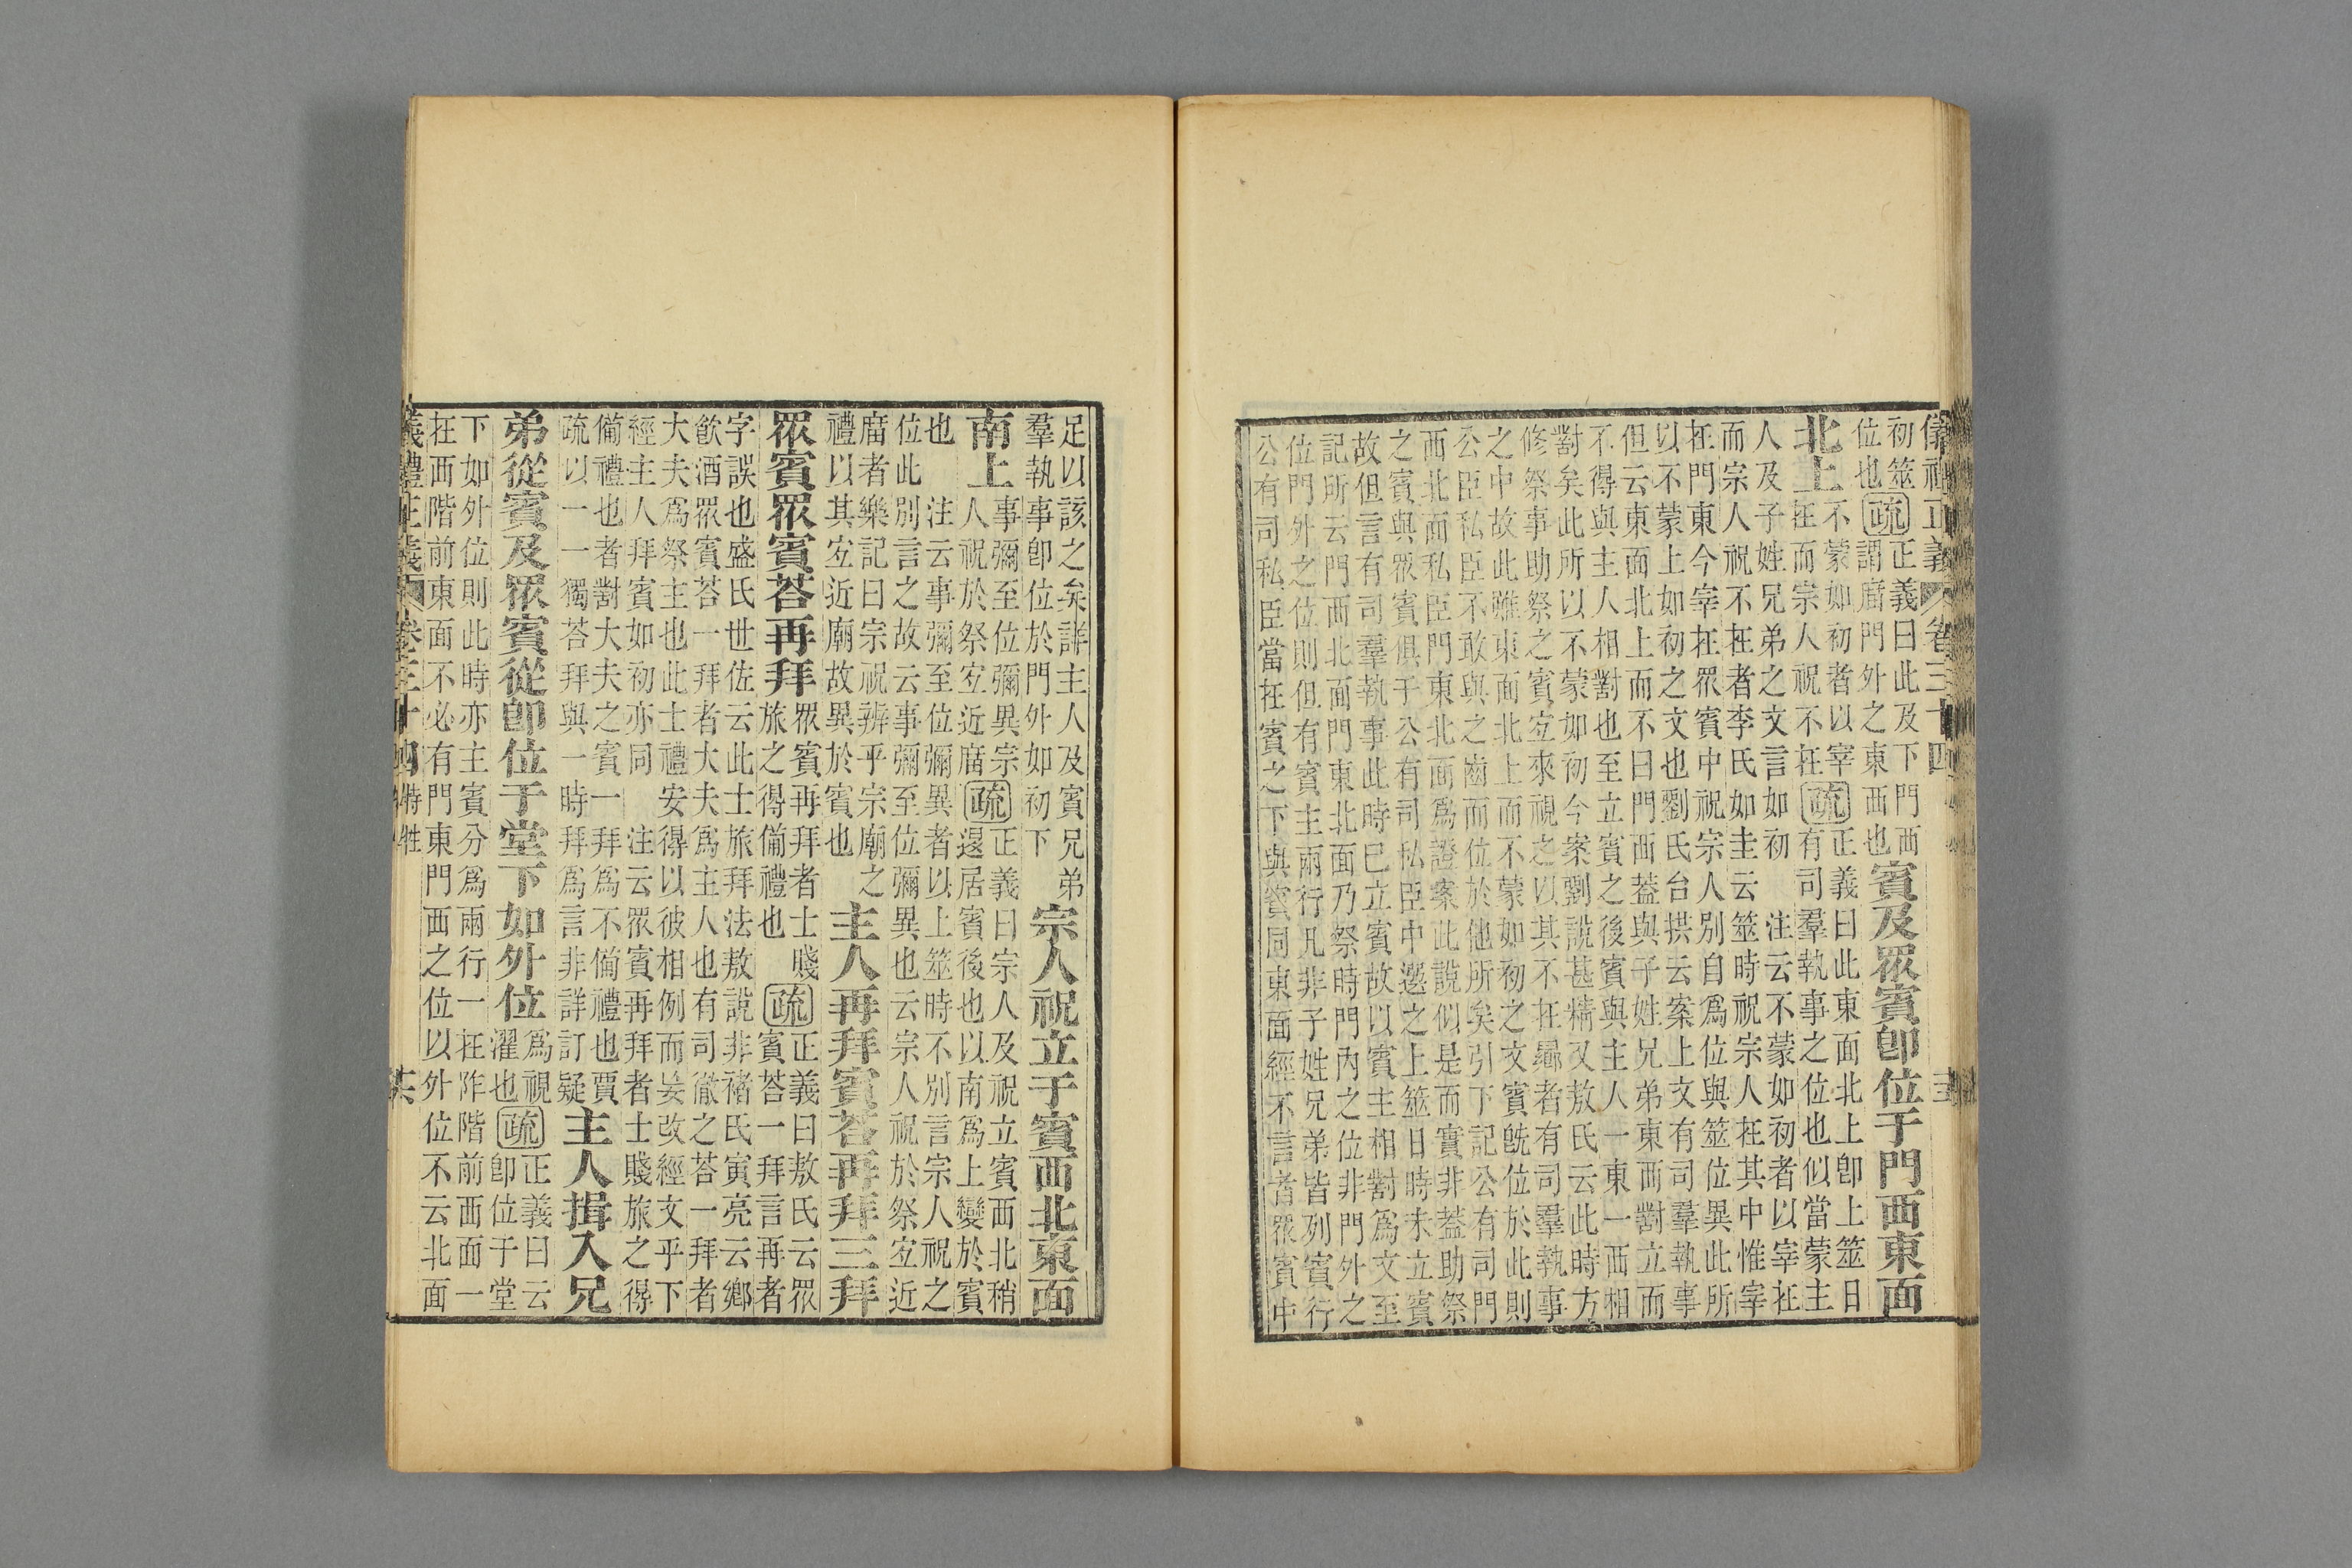 儀禮正義 卷三十四
初筮
位也
疏
正義曰此及下門西
謂廟門外之東西也
賓及眾賓卽位于門西東面
北上
不蒙如初者以宰
在而宗人祝不在
疏
正義曰此東面北上卽上筮日
有司羣執事之位也似當蒙主
人及子姓兄弟之文言如初　注云不蒙如初者以宰在
而宗人祝不在者李氏如圭云筮時祝宗人在其中惟宰
在門東今宰在眾賓中祝宗人別自爲位與筮位異此所
以不蒙上如初之文也劉氏台拱云案上文有司羣執事
但云東面北上而不曰門西葢與子姓兄弟東西對立而
不得與主人相對也至立賓之後賓與主人一東一西相
對矣此所以不蒙如初今案劉說甚精又敖氏云此時方
修祭事助祭之賓宜來視之以其不在者有司羣執事
之中故此雖東面北上而不蒙如初之文賓旣位於此則
公臣私臣不敢與之齒而位於他所矣引下記公有司門
西北面私臣門東北面爲證案此說似是而實非葢助祭
之賓與眾賓俱于公有司私臣中選之上筮日時未立賓
故但言有司羣執事此時已立賓故以賓主相對爲文至
記所云門西北面門東北面乃祭時門內之位非門外之
位門外之位則但有賓主兩行凡非子姓兄弟皆列賓行
公有司私臣當在賓之下與賓同東面經不言者眾賓中
足以該之矣詳主人及賓兄弟
羣執事卽位於門外如初下
宗人祝立于賓西北東面
南上
事彌至位彌異宗
人祝於祭宜近廟
疏
正義曰宗人及祝立賓西北稍
退居賓後也以南爲上變於賓
也　注云事彌至位彌異者以上筮時不別言宗人祝之
位此別言之故云事彌至位彌異也云宗人祝於祭宜近
廟者樂記曰宗祝辨乎宗廟之
禮以其宜近廟故異於賓也
主人再拜賓荅再拜三拜
眾賓眾賓荅再拜
眾賓再拜者士賤
旅之得備禮也
疏
正義曰敖氏云眾
賓荅一拜言再者
字誤也盛氏世佐云此士旅拜法敖說非褚氏寅亮云鄉
飲酒眾賓荅一拜者大夫爲主人也有司徹之荅一拜者
大夫爲祭主也此士禮安得以彼相例而妄改經文乎下
經主人拜賓如初亦同　注云眾賓再拜者士賤旅之得
備禮也者對大夫之賓一拜爲不備禮也賈
疏以一一獨荅拜與一時拜爲言非詳訂疑
主人揖入兄
弟從賓及眾賓從卽位于堂下如外位
爲視
濯也
疏
正義曰云
卽位于堂
下如外位則此時亦主賓分爲兩行一在阼階前西面一
在西階前東面不必有門東門西之位以外位不云北面
儀禮正義 卷三十四 特牲